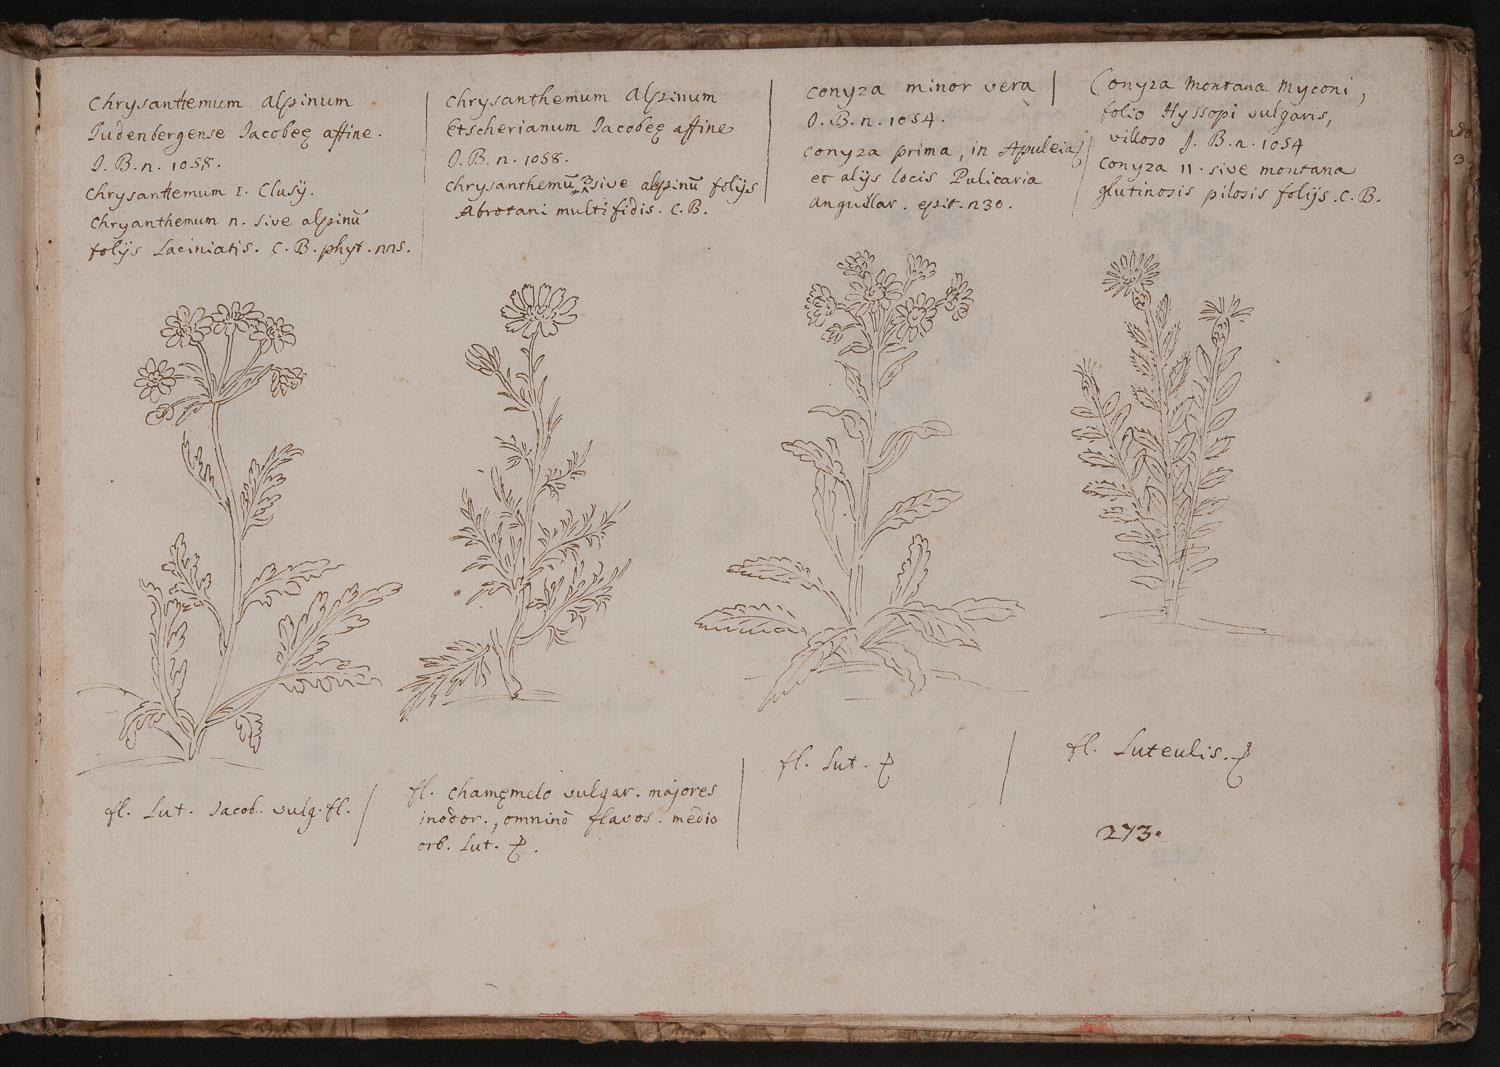 Chrysanthemum Alpinum
Judenbergense Jacobeę affine.
J. B. n. 1058.
Chrysanthemum 1. Clusÿ.
Chryanthemum n. sive alpinū
folÿs Laciniatis. C. B. phyt. nns.
Chrysanthemum Alpinum
Etscherianum Jacobeę affine
J. B. n. 1058.
Chrysanthemū 3 sive alpinū folÿs
Abrotani multifidis. C. B.
Conyza minor vera
J. B. n. 1054.
Conyza prima, in Apuleia,
et alÿs locis Pulicaria
Anguillar. epit. n30.
Conyza Montana Myconi,
folio Hyssopi vulgaris,
villoso J. B. n. 1054
Conyza 11. sive montana
glutinosis pilosis folÿs. C. B.
fl. Lut. Jacob. vulg. fl.
fl. Chamęmelo vulgar. majores
inodor., omninò flavos. medio
orb. Lut.
fl. Lut.
fl. Luteulis.
273.